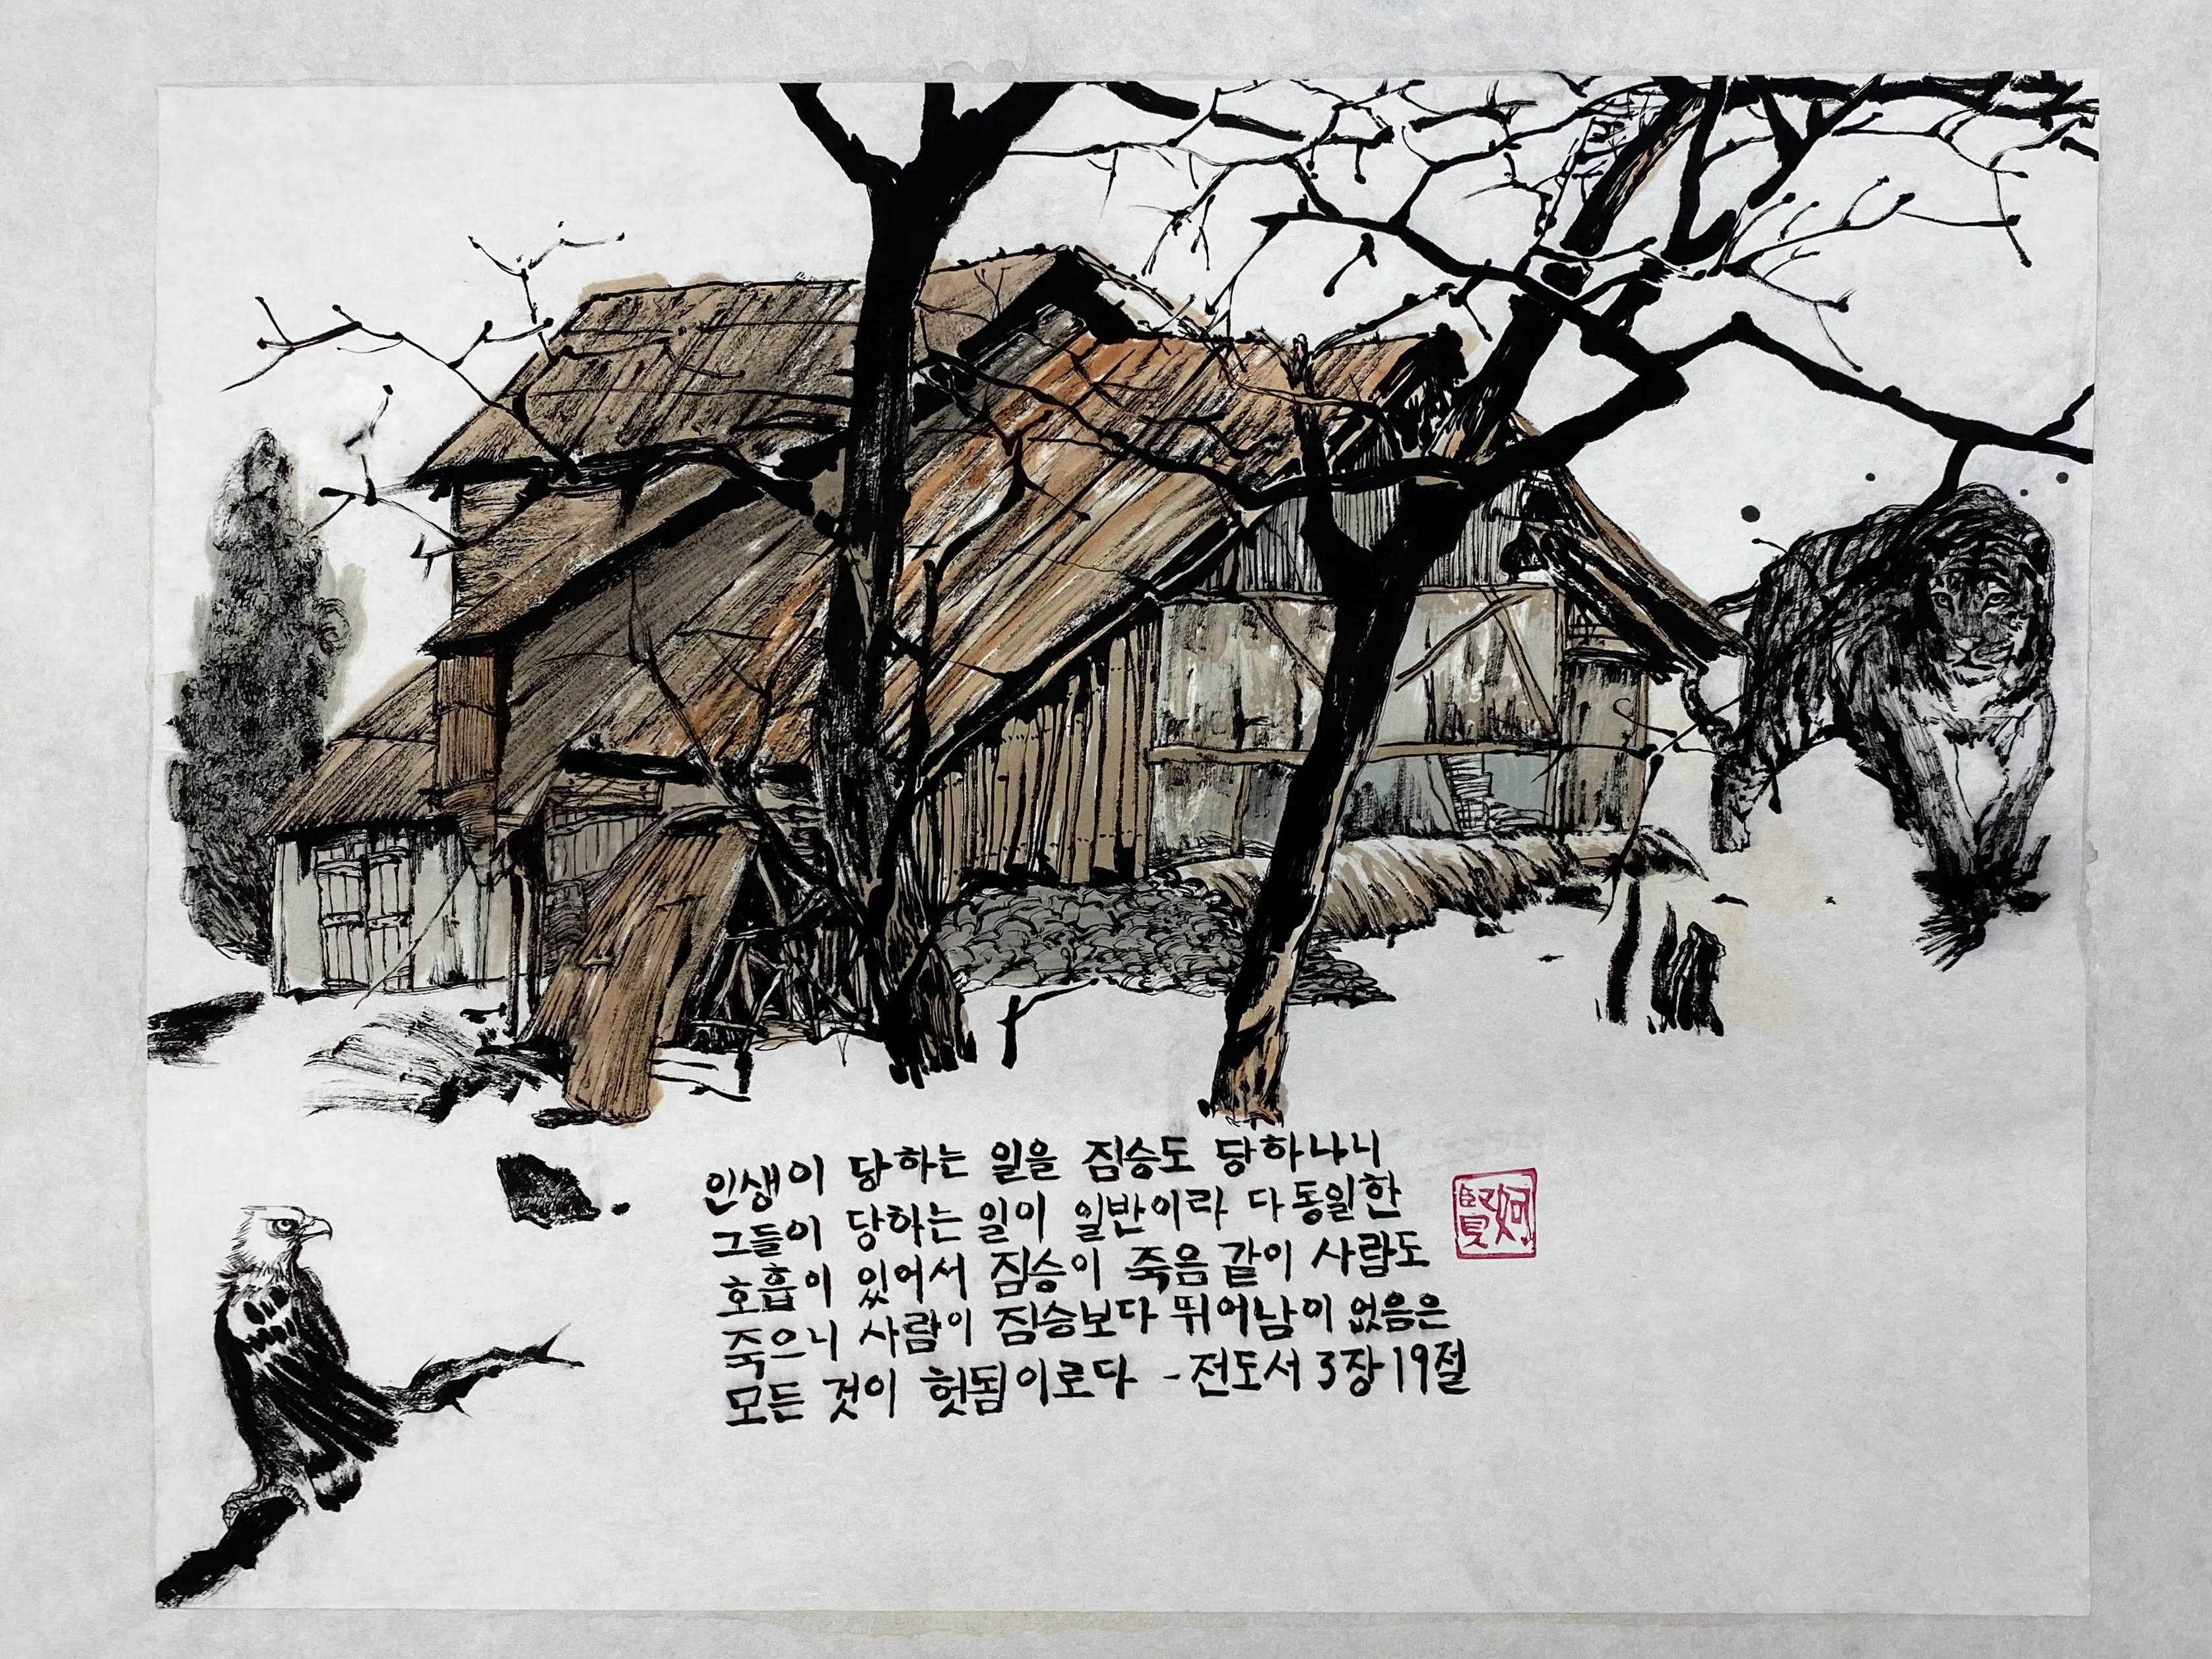 인생이 당하는 일을 짐승도 당하나니
그들이 당하는 일이 일반이라 다 동일한
호흡이 있어서 짐승이 죽음 같이 사람도
죽으니 사람이 짐승보다 뛰어남이 없음은
모든 것이 헛됨이로다 - 전도서 3장 19절